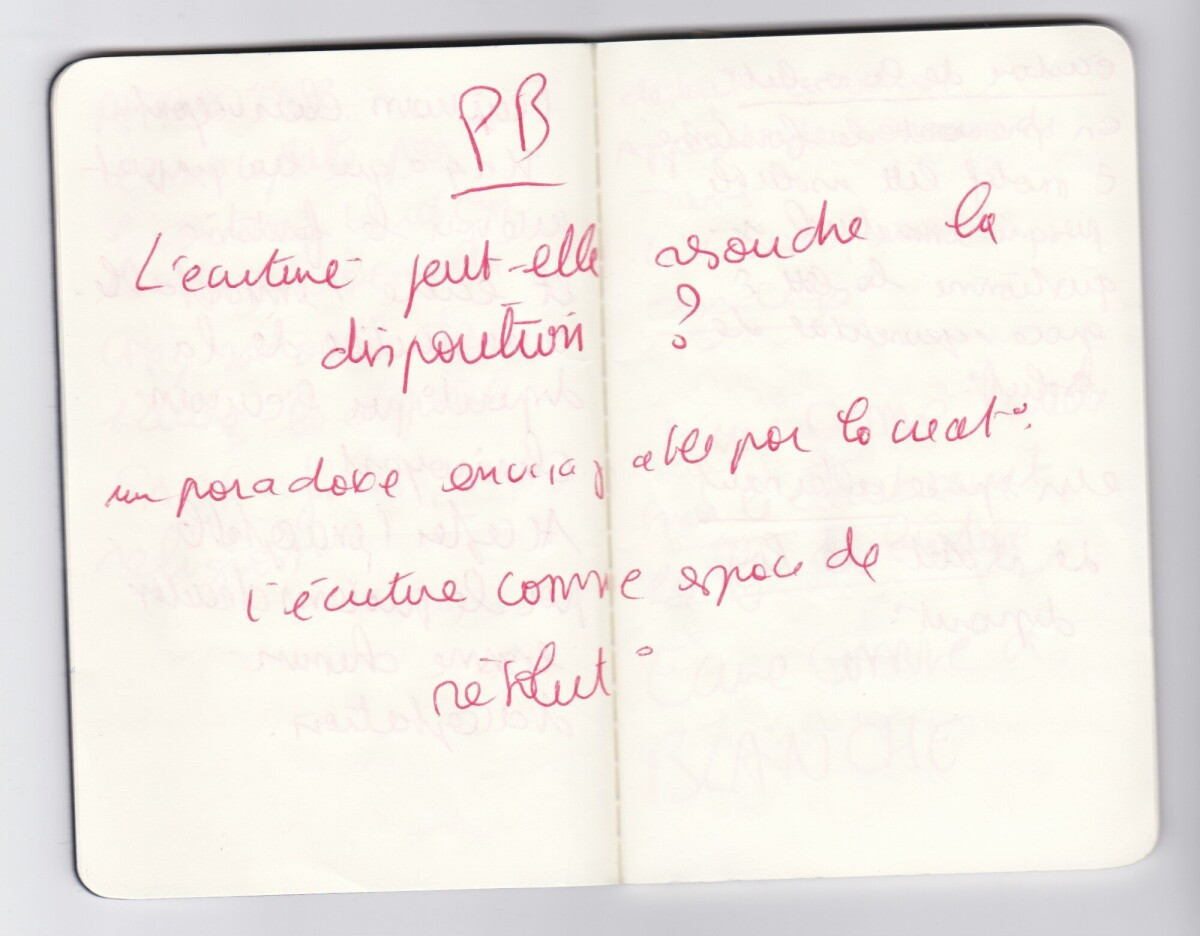 PB
L'écriture peut-elle résoudre la
disparition ?
un paradoxe envisageable par la creat°.
l'écriture comme espace de
résolut°